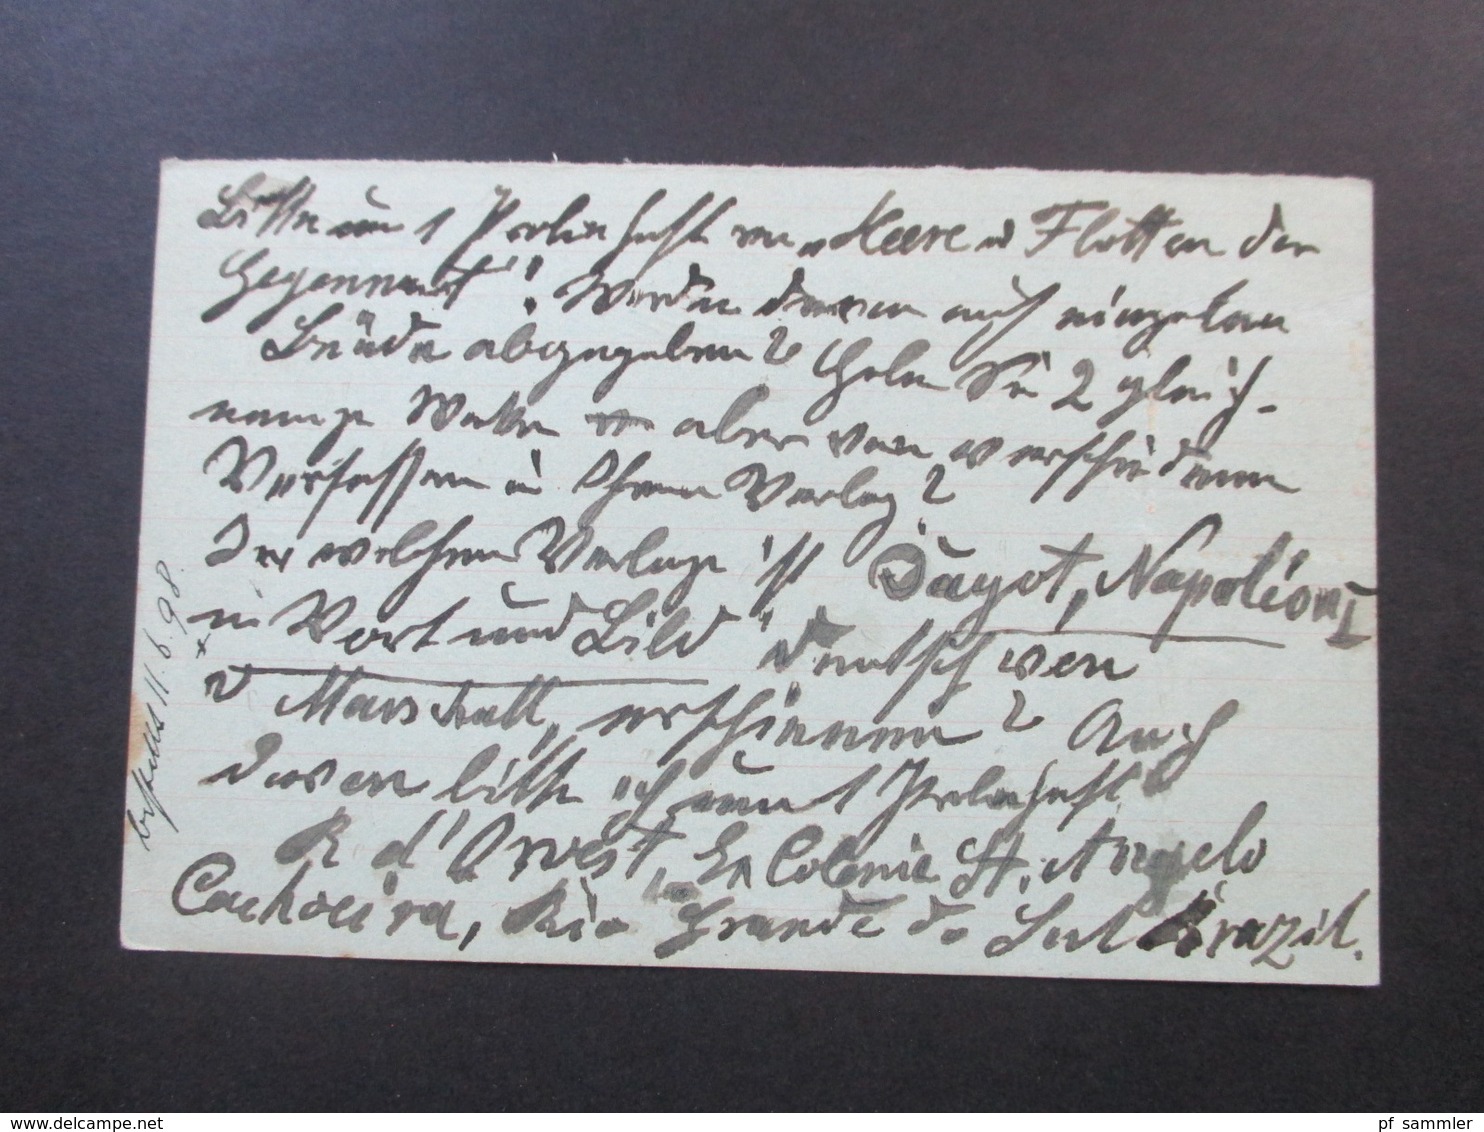 Bitte um 1 Probeheft von „Heere u Flotten der
Gegenwart"! Werden davon auch einzelne
Bände abgegeben? Haben Sie 2 gleich-
namige Werke aber von verschiedenen
Verfassern in Ihrem Verlag?
In welchem Verlage ist Dayot, Napoléon I
in Wort und Bild" deutsch von
v Marschall, erschienen? Auch
davon bitte ich um 1 Probeheft
R d'Orvest, Ex Colonie St. Angelo
Cachoeira, Rio Grande do Sul Brazil.
bestellt 11.6.98
pf sammler